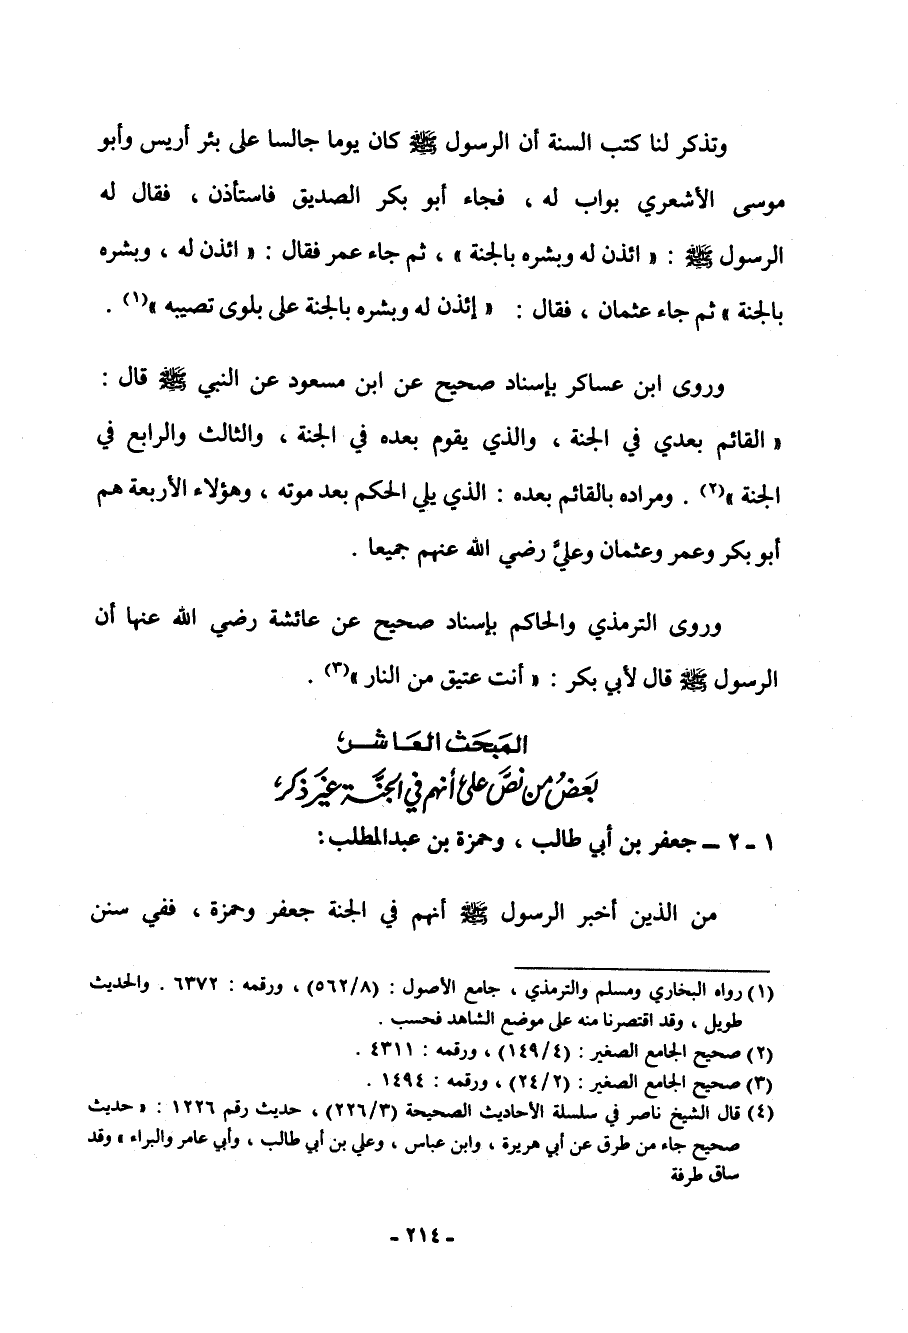 وتذكر لنا كتب السنة أن الرسول ﷺ كان يوما جالسا على بئر أريس وأبو
موسى الأشعري بواب له ، فجاء أبو بكر الصديق فاستأذن ، فقال له
الرسول ﷺ : « ائذن له وبشره بالجنة » ، ثم جاء عمر فقال : « ائذن له ، وبشره
بالجنة » ثم جاء عثمان ، فقال : « إئذن له وبشره بالجنة على بلوى تصيبه »(١) .
وروى ابن عساكر بإسناد صحيح عن ابن مسعود عن النبي ﷺ قال :
« القائم بعدي في الجنة ، والذي يقوم بعده في الجنة ، والثالث والرابع في
الجنة »(٢) . ومراده بالقائم بعده : الذي يلي الحكم بعد موته ، وهؤلاء الأربعة هم
أبو بكر وعمر وعثمان وعليٌّ رضي الله عنهم جميعا .
وروى الترمذي والحاكم بإسناد صحيح عن عائشة رضي الله عنها أن
الرسول ﷺ قال لأبي بكر : « أنت عتيق من النار »(٣) .
المبَحَث العَاشر
بَعَضُ من نصَّ على أنهم في الجنَّة غيَر ذكر
١ - ٢ ــ جعفر بن أبي طالب ، وحمزة بن عبدالمطلب :
من الذين أخبر الرسول ﷺ أنهم في الجنة جعفر وحمزة ، ففي سنن
(١) رواه البخاري ومسلم والترمذي ، جامع الأصول : (٥٦٢/٨) ، ورقمه : ٦٣٧٢ . والحديث
طويل ، وقد اقتصرنا منه على موضع الشاهد فحسب .
(٢) صحيح الجامع الصغير : (١٤٩/٤) ، ورقمه : ٤٣١١ .
(٣) صحيح الجامع الصغير : (٢٤/٢) ، ورقمه : ١٤٩٤ .
(٤) قال الشيخ ناصر في سلسلة الأحاديث الصحيحة (٢٢٦/٣) ، حديث رقم ١٢٢٦ : « حديث
صحيح جاء من طرق عن أبي هريرة ، وابن عباس ، وعلي بن أبي طالب ، وأبي عامر والبراء » وقد
ساق طرفة
- ٢١٤ -